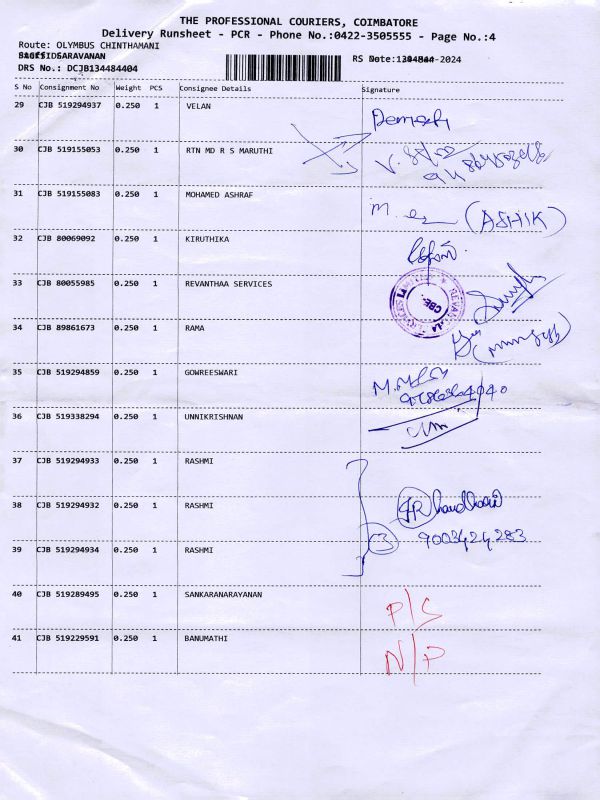 THE PROFESSIONAL COURIERS, COIMBATORE
Delivery Runsheet - PCR - Phone No.:0422-3505555 - Page No.:4
Route: OLYMBUS CHINTHAMANI
SARAVANAN
RS -2024
DRS No.: DCJB134484404
S No Consignment No Weight PCS Consignee Details Signature
29 CJB 519294937 0.250 1 VELAN
30 CJB 519155053 0.250 1 RTN MD R S MARUTHI
31 CJB 519155083 0.250 1 MOHAMED ASHRAF (ASHIK)
32 CJB 80069092 0.250 1 KIRUTHIKA
33 CJB 80055985 0.250 1 REVANTHAA SERVICES
CBE
34 CJB 89861673 0.250 1 RAMA
35 CJB 519294859 0.250 1 GOWREESWARI
36 CJB 519338294 0.250 1 UNNIKRISHNAN
37 CJB 519294933 0.250 1 RASHMI
38 CJB 519294932 0.250 1 RASHMI
3 9003424283
39 CJB 519294934 0.250 1 RASHMI
40 CJB 519289495 0.250 1 SANKARANARAYANAN P/S
41 CJB 519229591 0.250 1 BANUMATHI N/P